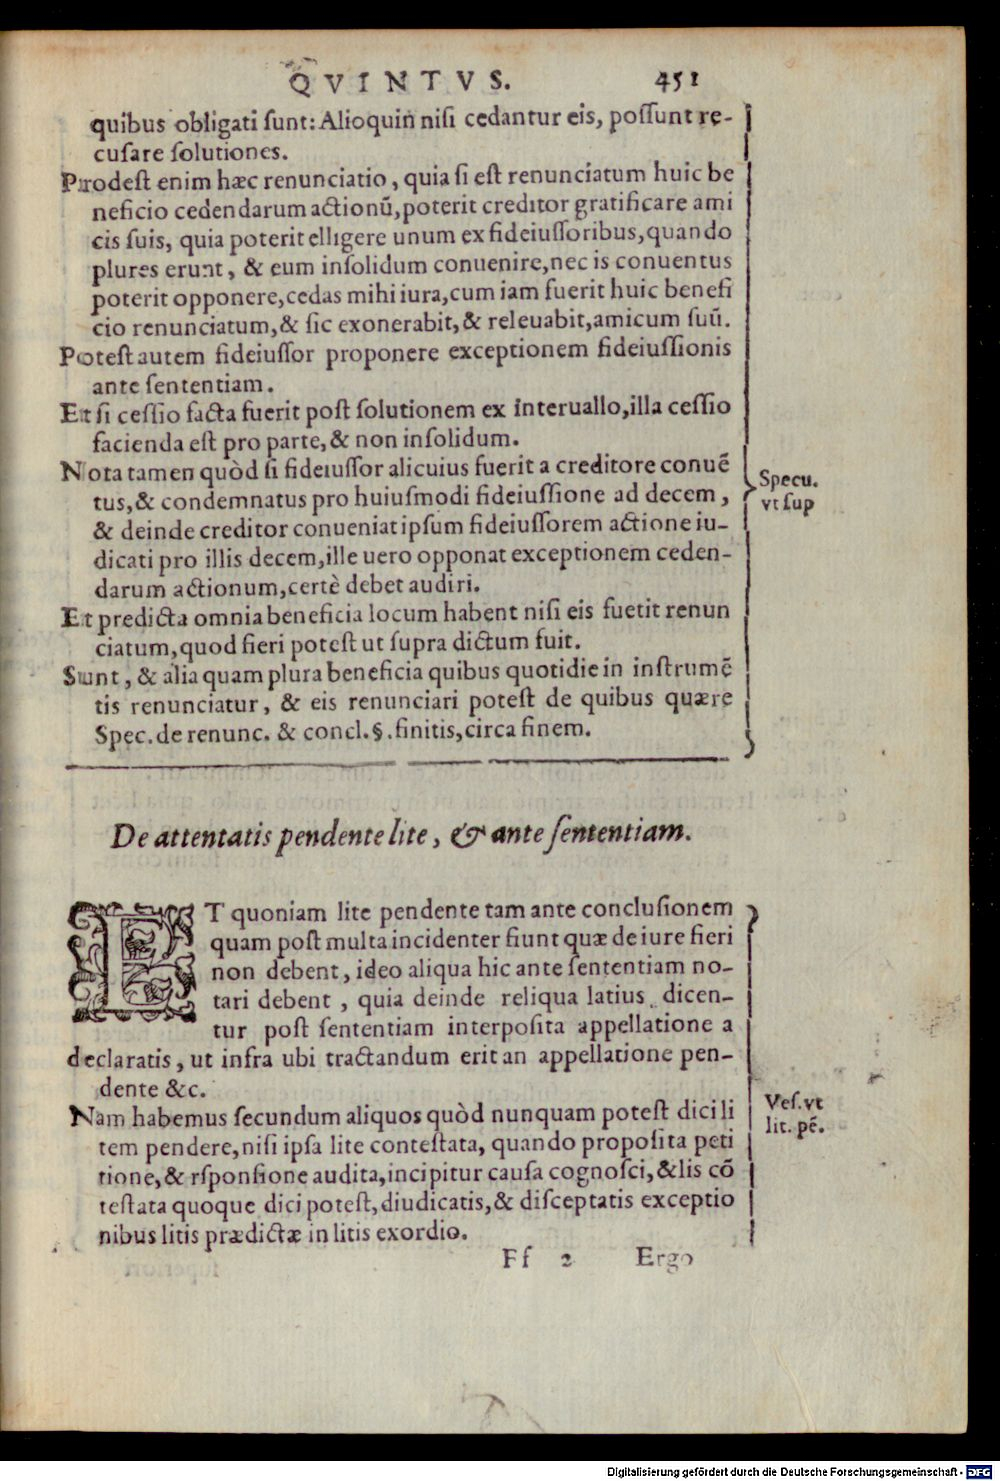 QVINTVS. 451
quibus obligati sunt: Alioquin nisi cedantur eis, possunt re-
cusare solutiones.
Prodest enim hæc renunciatio, quia si est renunciatum huic be
neficio cedendarum actionū, poterit creditor gratificare ami
cis suis, quia poterit elligere unum ex fideiussoribus, quando
plures erunt, & eum insolidum conuenire, nec is conuentus
poterit opponere, cedas mihi iura, cum iam fuerit huic benefi
cio renunciatum, & sic exonerabit, & releuabit, amicum suū.
Potest autem fideiussor proponere exceptionem fideiussionis
ante sententiam.
Et si cessio facta fuerit post solutionem ex interuallo, illa cessio
facienda est pro parte, & non insolidum.
Nota tamen quòd si fideiussor alicuius fuerit a creditore conuē
tus, & condemnatus pro huiusmodi fideiussione ad decem,
& deinde creditor conueniat ipsum fideiussorem actione iu-
dicati pro illis decem, ille uero opponat exceptionem ceden-
darum actionum, certè debet audiri.
Specu.
vt sup
Et predicta omnia beneficia locum habent nisi eis fuetit renun
ciatum, quod fieri potest ut supra dictum fuit.
Sunt, & alia quam plura beneficia quibus quotidie in instrumē
tis renunciatur, & eis renunciari potest de quibus quære
Spec. de renunc. & concl. §. finitis, circa finem.
De attentatis pendente lite, & ante sententiam.
ET quoniam lite pendente tam ante conclusionem
quam post multa incidenter fiunt quæ de iure fieri
non debent, ideo aliqua hic ante sententiam no-
tari debent, quia deinde reliqua latius dicen-
tur post sententiam interposita appellatione a
declaratis, ut infra ubi tractandum erit an appellatione pen-
dente &c.
Nam habemus secundum aliquos quòd nunquam potest dici li
tem pendere, nisi ipsa lite contestata, quando proposita peti
tione, & rsponsione audita, incipitur causa cognosci, & lis cō
testata quoque dici potest, diudicatis, & disceptatis exceptio
nibus litis prædictæ in litis exordio.
Ves. vt
lit. pē.
Ff 2 Ergo
Digitalisierung gefördert durch die Deutsche Forschungsgemeinschaft - DFG